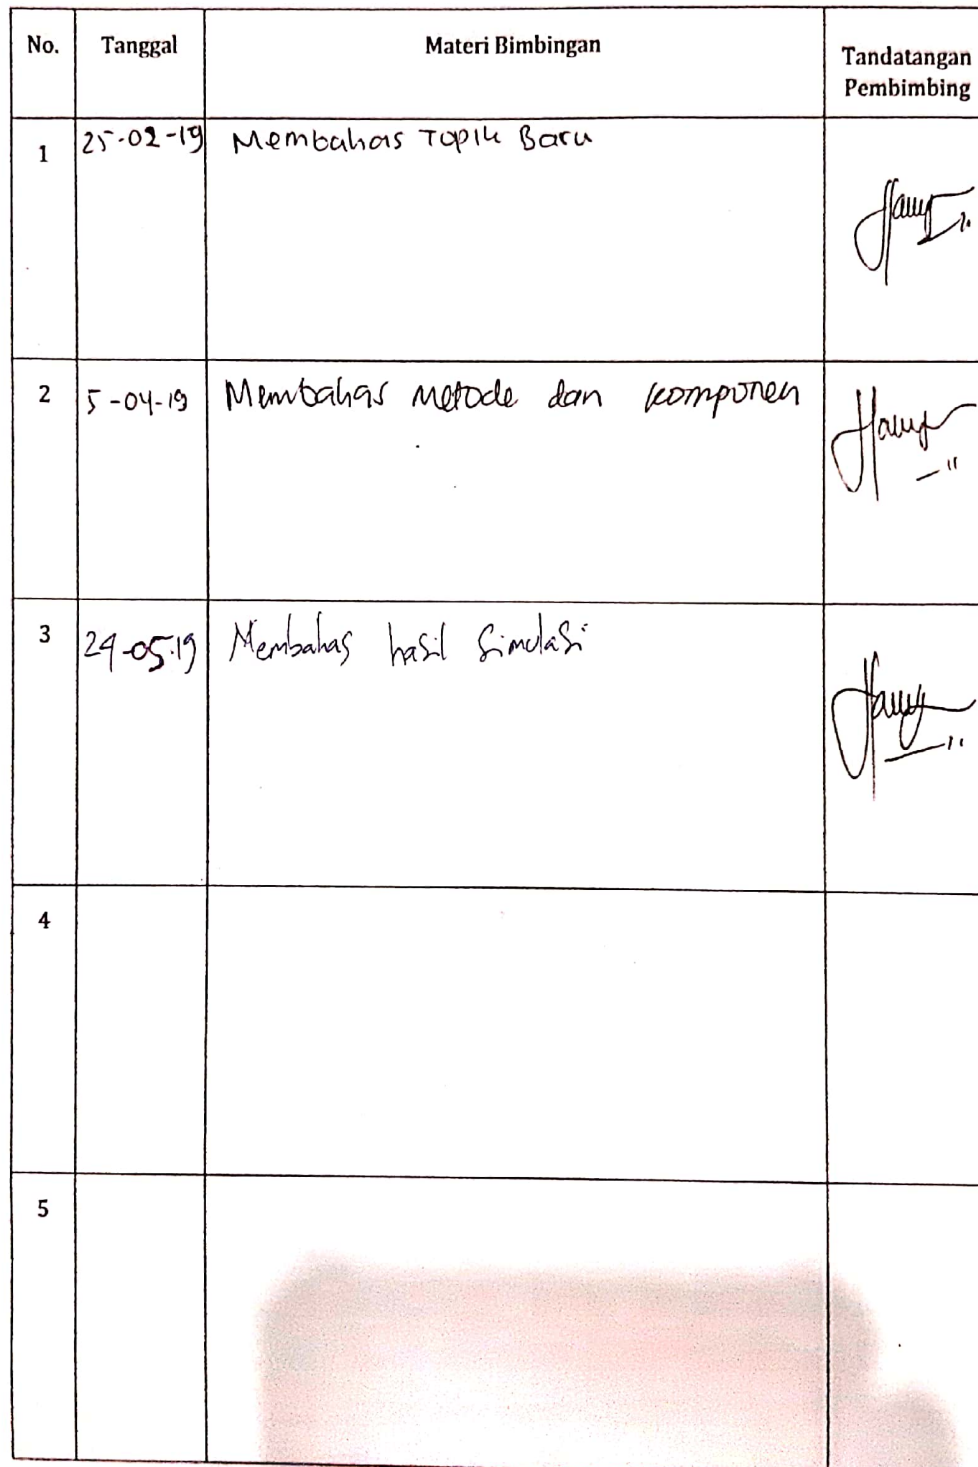 No. Tanggal Materi Bimbingan Tandatangan
Pembimbing
1 25-02-19 Membahas Topik Baru
2 5-04-19 Membahas metode dan komponen
3 24-05-19 Membahas hasil Simulasi
4
5